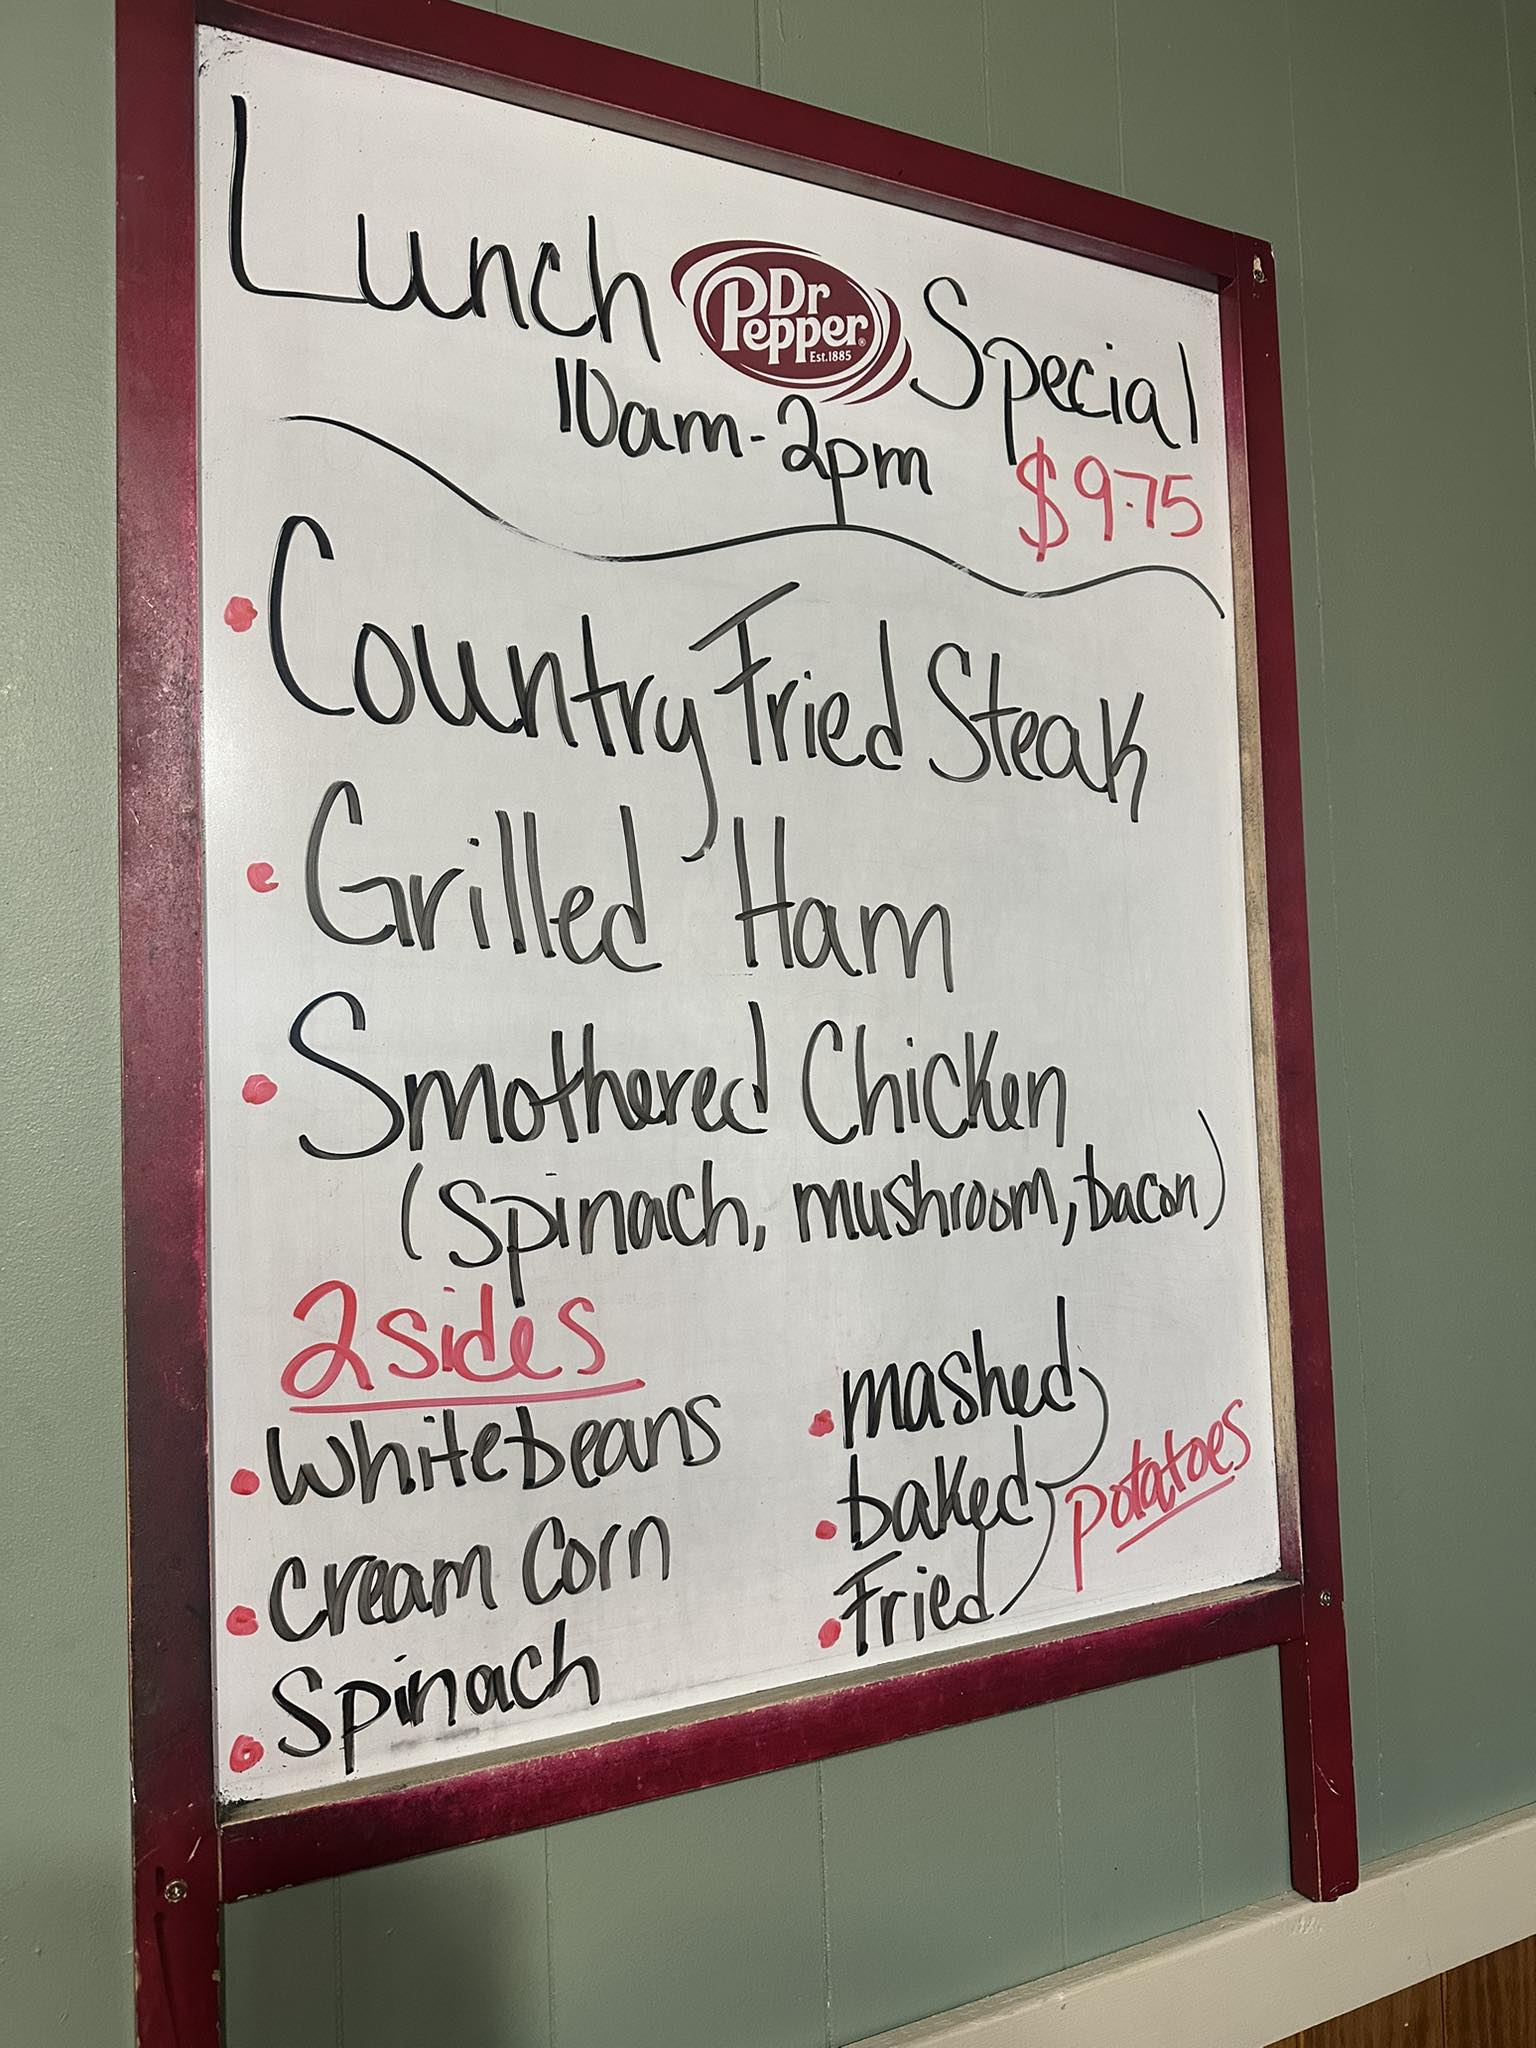 Lunch Dr Pepper Est. 1885 Special
10am-2pm $9.75
• Country Fried Steak
• Grilled Ham
• Smothered Chicken
(Spinach, mushroom, bacon)
2 sides
• Whitebeans
• Cream Corn
• Spinach
• mashed
• baked
• Fried
potatoes